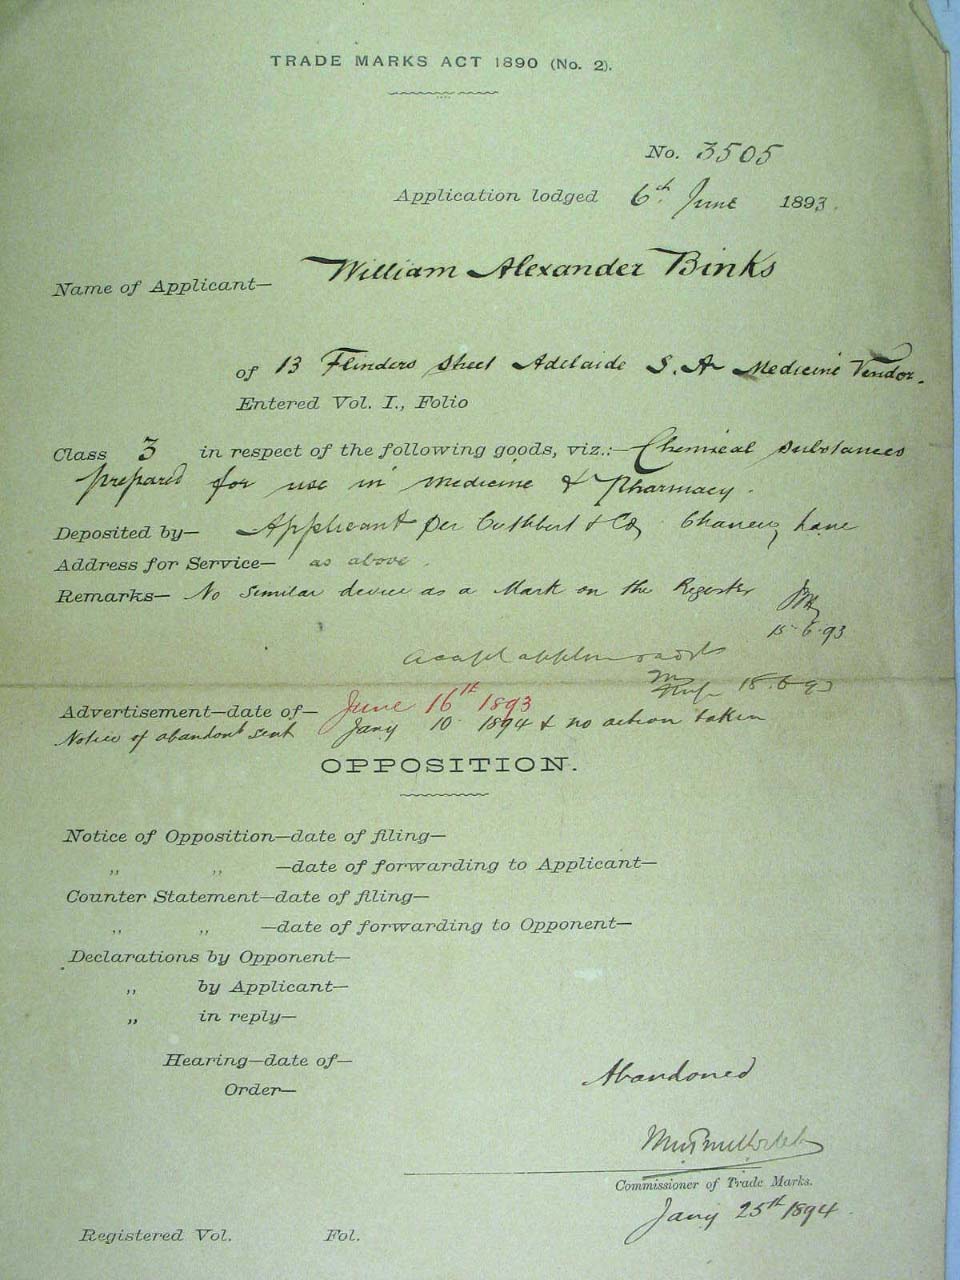 TRADE MARKS ACT 1890 (No. 2).
No. 3505
Application lodged 6th June 1893.
Name of Applicant— William Alexander Binks
of 13 Flinders Street Adelaide S. A Medicine Vendor.
Entered Vol. I., Folio
Class 3 in respect of the following goods, viz.:— Chemical substances
prepared for use in medicine & Pharmacy.
Deposited by— Applicant per Cuthbert & Co Chancery Lane
Address for Service— as above.
Remarks— No similar device as a Mark on the Register
15-6-93
18.6.93
Advertisement—date of— June 16th 1893
Notice of abandont sent Jany 10 1894 & no action taken
OPPOSITION.
Notice of Opposition—date of filing—
,, ,, —date of forwarding to Applicant—
Counter Statement—date of filing—
,, ,, —date of forwarding to Opponent—
Declarations by Opponent—
,, by Applicant—
,, in reply—
Hearing—date of—
Order—
Abandoned
Commissioner of Trade Marks.
Jany 25th 1894
Registered Vol. Fol.